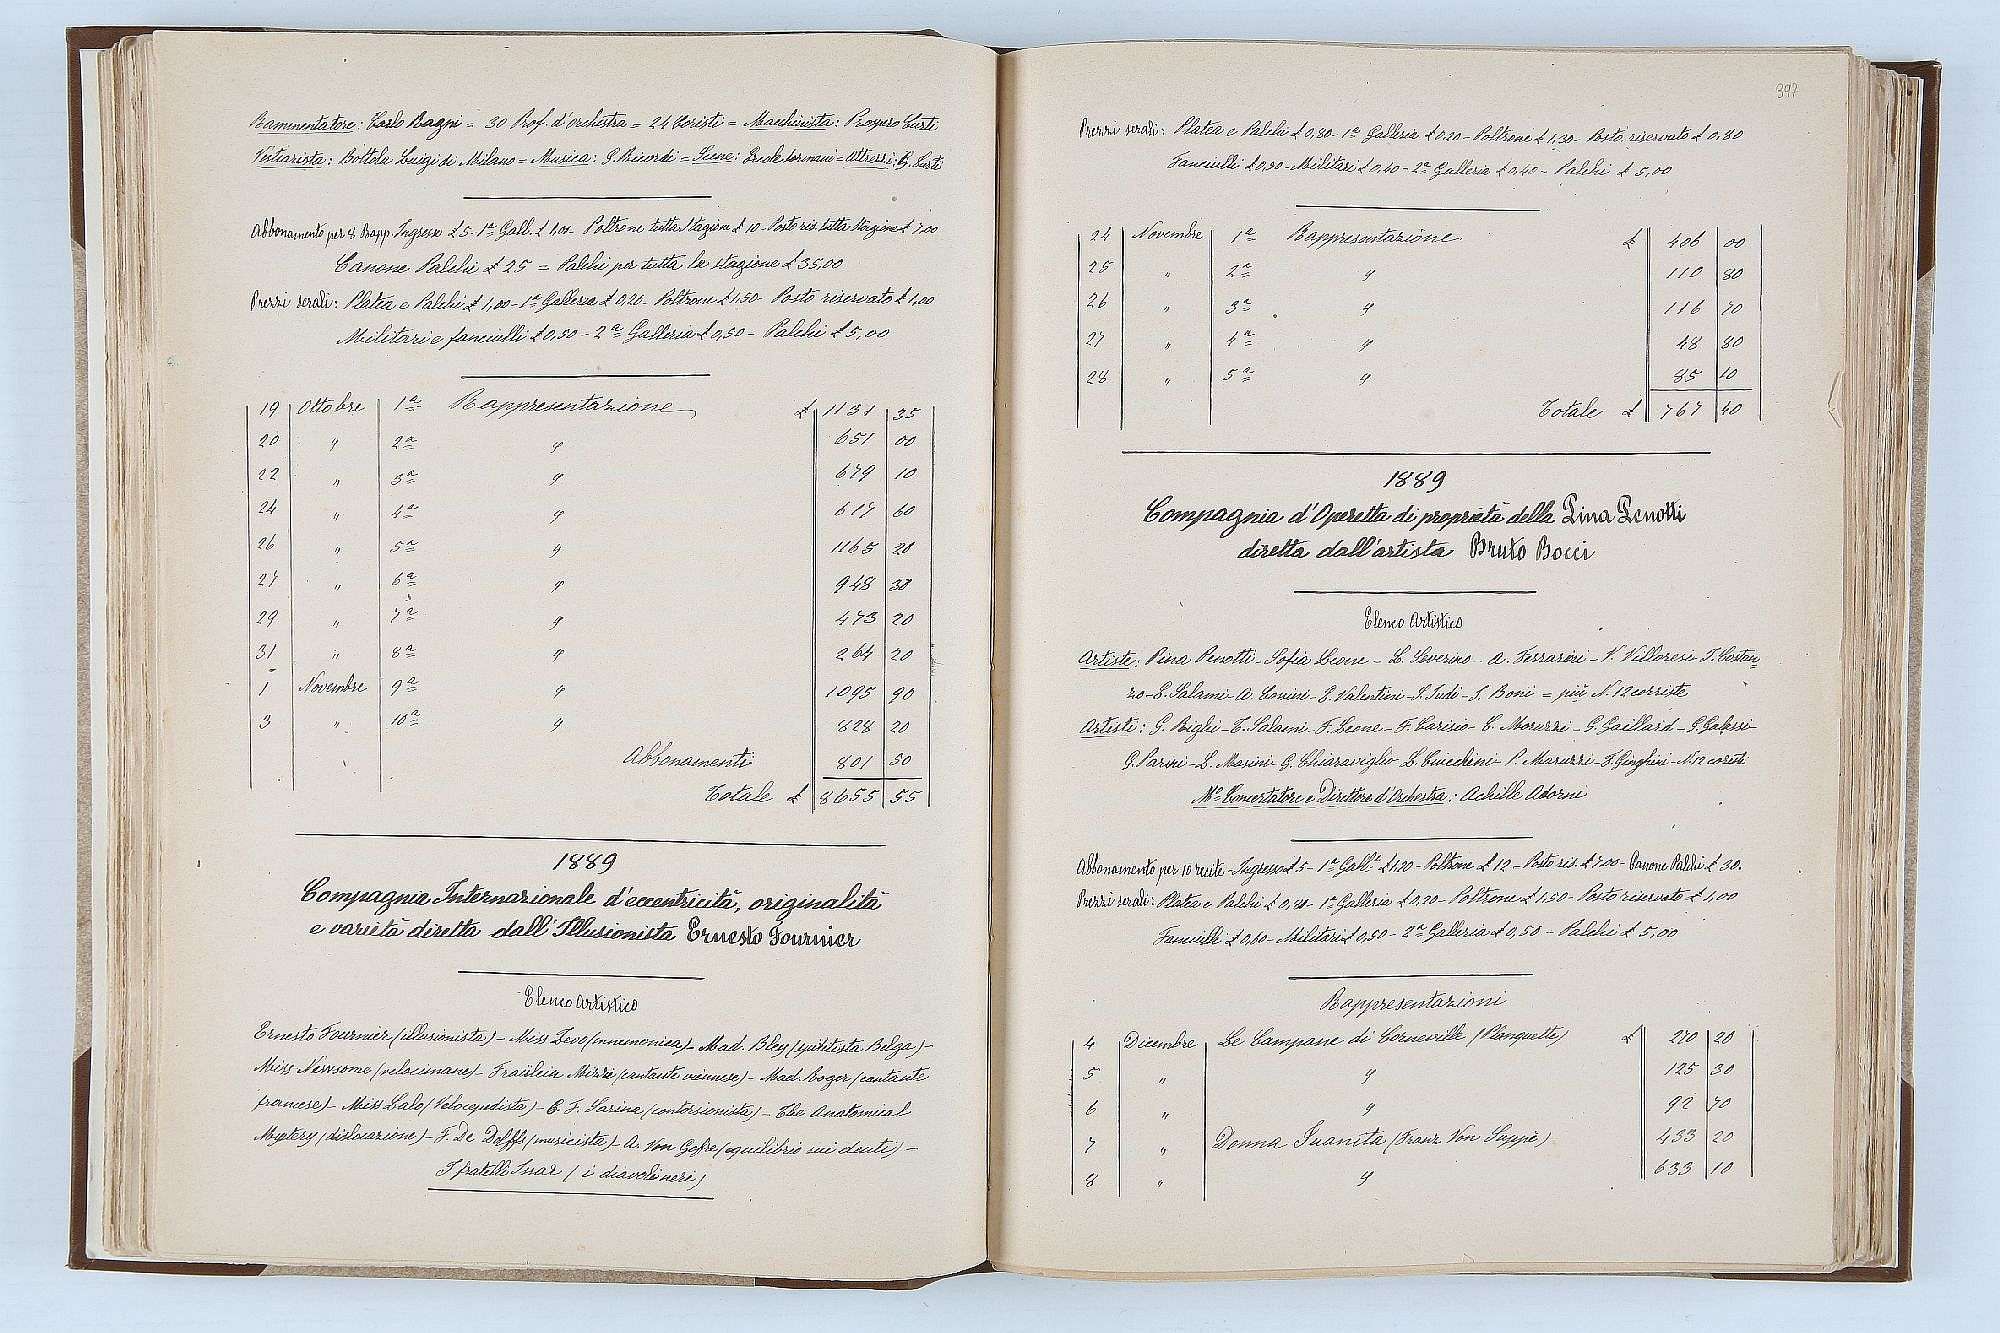 Rammentatore: Carlo Bagni = 30 Prof. d'orchestra = 24 Coristi = Macchinista: Prospero Curti
Vestiarista: Bottola Luigi di Milano = Musica: G. Ricordi = Scene: Ercole Sormani = Attrezzi: P. Curti
Abbonamento per 8 Rapp. Ingresso £ 5 - 1ª Gall. £ 1,00 - Poltrone tutta Stagione £ 10 - Posto ris. tutta Stagione £ 7,00
Canone Palchi £ 25 = Palchi per tutta la stagione £ 35,00
Prezzi serali: Platea e Palchi £ 1,00 - 1ª Galleria £ 0,20 - Poltrone £ 1,50 - Posto riservato £ 1,00
Militari e fanciulli £ 0,50 - 2ª Galleria £ 0,50 - Palchi £ 5,00
19 Ottobre 1ª Rappresentazione £ 1131 35
20 " 2ª " 651 00
22 " 3ª " 679 10
24 " 4ª " 617 60
26 " 5ª " 1165 20
27 " 6ª " 948 30
29 " 7ª " 473 20
31 " 8ª " 264 20
1 Novembre 9ª " 1095 90
3 " 10ª " 828 20
Abbonamenti 801 50
Totale £ 8655 55
1889
Compagnia Internazionale d'eccentricità, originalità
e varietà diretta dall'Illusionista Ernesto Fournier
Elenco Artistico
Ernesto Fournier (illusionista) - Miss Zevo (mnemonica) - Mad. Bley (quilitista Belga) -
Miss Newsome (velocimane) - Fraülein Mizzi (cantante viennese) - Mad. Roger (cantante
francese) - Miss Lalo (Velocepedista) - C. F. Sarina (contorsionista) - The Anatomical
Mystery (dislocazione) - F. De Dolffs (musicista) - A. Von Gofre (equilibrio sui denti) -
I fratelli Inar (i diavoli neri)
397
Prezzi serali: Platea e Palchi £ 0,80 - 1ª Galleria £ 0,20 - Poltrone £ 1,30 - Posto riservato £ 0,80
Fanciulli £ 0,50 - Militari £ 0,40 - 2ª Galleria £ 0,40 - Palchi £ 5,00
24 Novembre 1ª Rappresentazione £ 406 00
25 " 2ª " 110 80
26 " 3ª " 116 70
27 " 4ª " 48 80
28 " 5ª " 85 10
Totale £ 767 40
1889
Compagnia d'Operetta di proprietà della Pina Penotti
diretta dall'artista Bruto Bocci
Elenco Artistico
Artiste: Pina Penotti - Sofia Leone - L. Severino - A. Ferrarini - V. Villoresi - T. Costan-
zo - E. Salami - A. Conini - E. Valentini - S. Tudi - S. Boni = più N. 12 corriste
Artisti: G. Biglii - E. Salami - F. Leone - F. Carisio - C. Moruzzi - G. Gaillard - G. Galassi
G. Parini - L. Masini - G. Chiaraviglio - L. Cuicchini - P. Maruzzi - F. Ginghini - N. 12 corist.
Mº Concertatore e Direttore d'Orchestra: Achille Adorni
Abbonamento per 10 recite - Ingresso £ 5 - 1ª Gallª £ 1,20 - Poltrone £ 12 - Posto ris. £ 7,00 - Canone Palchi £ 30.
Prezzi serali: Platea e Palchi £ - 1ª Galleria £ 0,20 - Poltrone £ 1,50 - Posto riservato £ 1,00
Fanciulli £ 0,60 - Militari £ 0,50 - 2ª Galleria £ 0,50 - Palchi £ 5,00
Rappresentazioni
4 Dicembre Le Campane di Corneville (Planquette) £ 270 20
5 " " 125 30
6 " " 92 70
7 " Donna Juanita (Franz Von Suppè) 433 20
8 " " 633 10